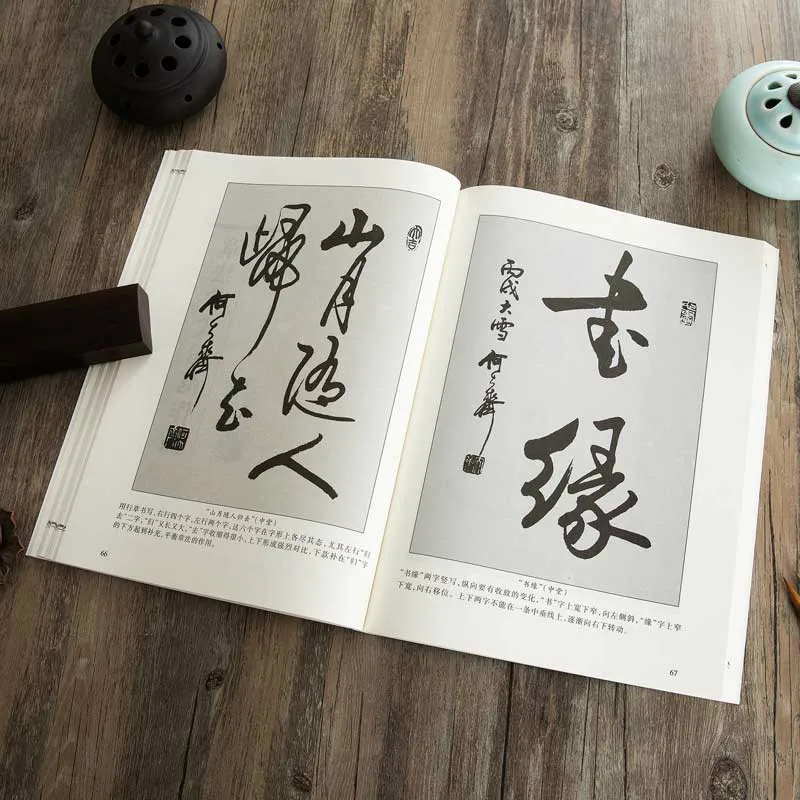 山月随人
歸去
何大齊
“山月随人归去”(中堂)
用行草书写,右行四个字,左行两个字,这六个字在字形上各尽其态,尤其左行“归
去”二字,“归”又长又大,“去”字收缩得很小,上下形成强烈对比,下款补在“归”字
的下方起到补充,平衡章法的作用。
66
书缘
丙戌大雪 何大齊
“书缘”(中堂)
“书缘”两字竖写,纵向要有收放的变化,“书”字上宽下窄,向左侧斜,“缘”字上窄
下宽,向右移位。上下两字不能在一条中垂线上,逐渐向右下转动。
67